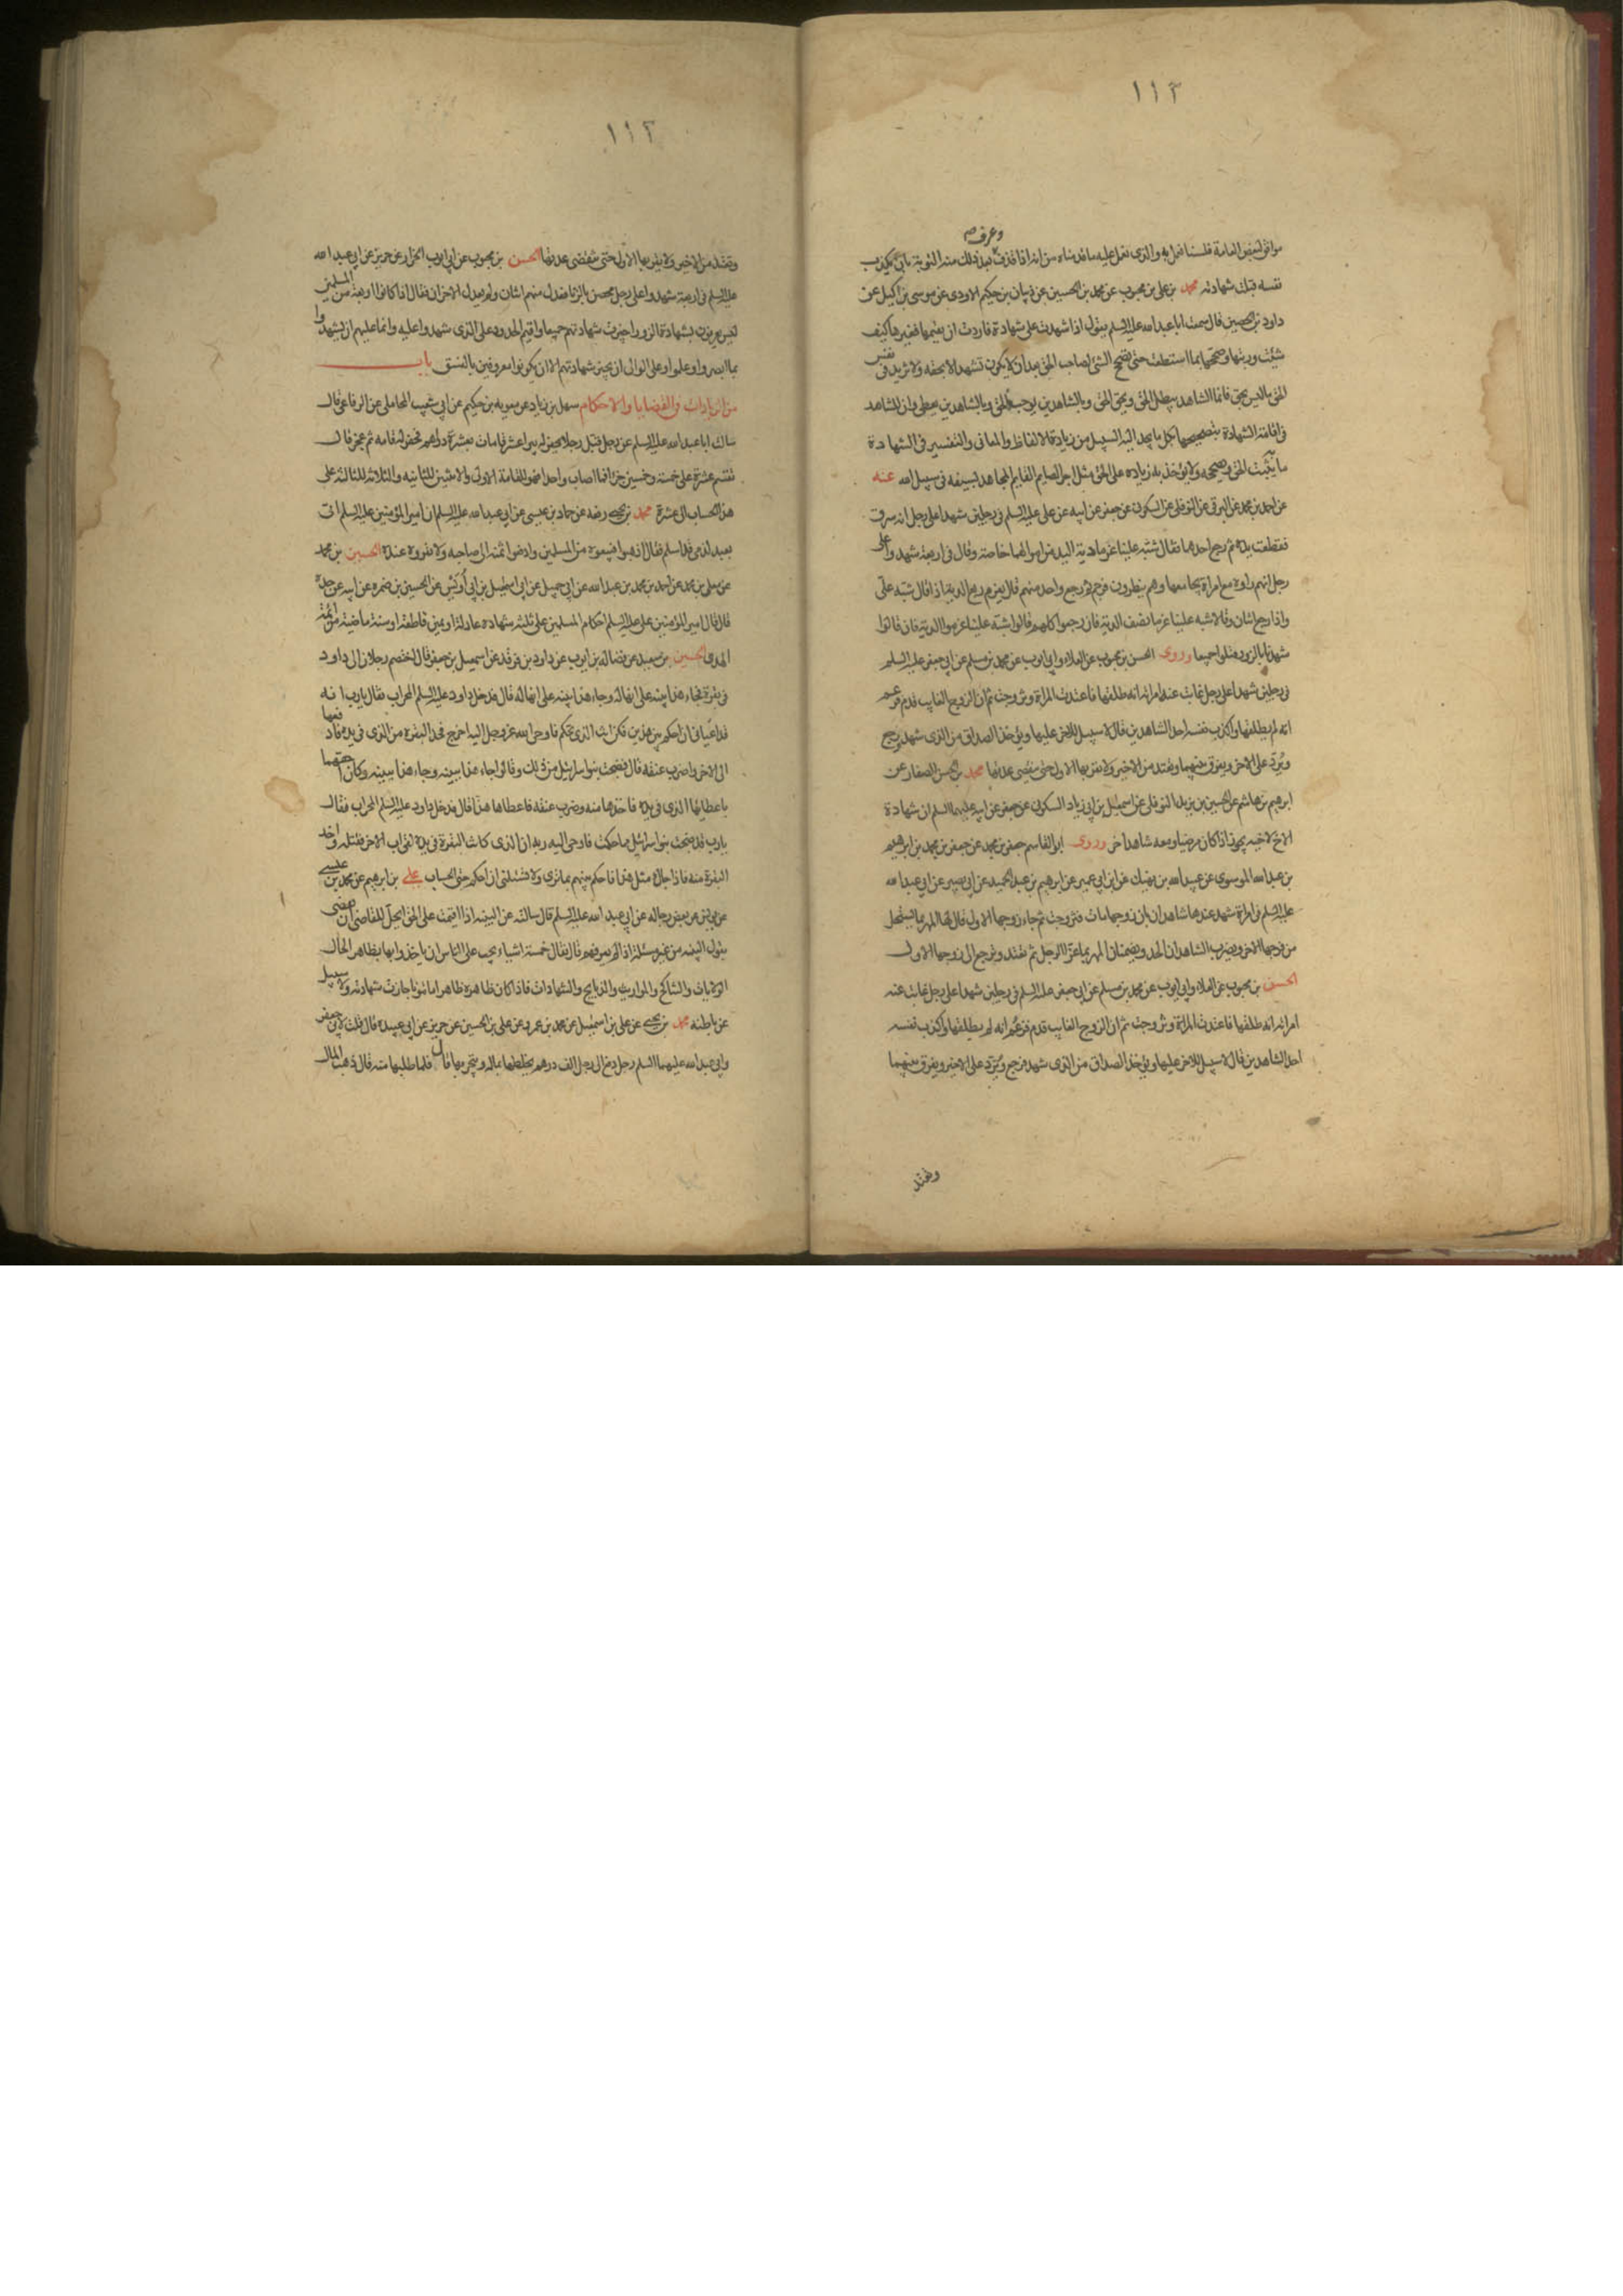 ١١٣
وعرف صح
موافق لبعض العامة فلسنا نعمل به والذى نعمل عليه ما قدمناه من انه اذا قذف بعد ذلك منه التوبة بانّ يكذب
نفسه قبلت شهادته محمد بن على بن محبوب عن محمد بن الحسين عن ذبيان بن حكيم الاودى عن موسى بن اكيل عن
داود بن الحصين قال سمعت ابا عبد الله عليه السلم يقول اذا شهدت على شهادة فاردت ان تقيمها فغيرها كيف
شئت ورتبها وصححها بما استطعت حتى يصح الشئ لصاحب الحق بعد ان لا يكون تشهد الا بحقه ولا تزيد فى نفس
الحق ما ليس بحق فانما الشاهد يبطل الحق ويحق الحق وبالشاهدين يوجب الحق وبالشاهدين يعطى وان للشاهد
فى اقامة الشهادة بتصحيحها بكل ما يجد اليه السبيل من زيادة الالفاظ والمعانى والتفسير فى الشهادة
ما يثبت الحق ويصححه ولا يؤخذ به زياده على الحق مثل اجر الصايم القايم المجاهد بسيفه فى سبيل الله عنه
عن احمد بن محمد عن البرقى عن النوفلى عن السكونى عن جعفر عن ابيه عن على عليه السلم فى رجلين شهدا على رجل انه سرق
فقطعت يده ثم رجع احدهما فقال شبّه علينا غرما دية اليد من اموالهما خاصة وقال فى اربعة شهدوا على
رجل انهم راوه مع امراة يجامعها وهم ينظرون فرجم ثم رجع واحد منهم قال يغرم ربع الدية اذا قال شبّه علىّ
واذا رجع اثنان وقالا شبه علينا غرما نصف الدية فان رجعوا كلهم قالوا شبّه علينا غرموا الدية فان قالوا
شهدنا بالزور قتلوا جميعا وروى الحسن بن محبوب عن العلاء وابى ايوب عن محمد بن مسلم عن ابى جعفر عليه السلم
فى رجلين شهدا على رجل غائب عنه امراته انه طلقها فاعتدت المراة وتزوجت ثم ان الزوج الغايب قدم فزعم
انه لم يطلقها واكذب نفسه احد الشاهدين قال لا سبيل للاخر عليها ويؤخذ الصداق من الذى شهد ورجع
ويردّ على الاخر ويفرق بينهما وتعتد من الاخير ولا يقربها الاول حتى تنقضى عدتها محمد بن الحسن الصفار عن
ابرهيم بن هاشم عن الحسين بن يزيد النوفلى عن اسمعيل بن ابى زياد السكونى عن جعفر عن ابيه عليهما السلم ان شهادة
الاخ لاخيه يجوز اذا كان مرضيا ومعه شاهد اخر وروى ابو القاسم جعفر بن محمد عن جعفر بن محمد بن ابرهيم
بن عبد الله الموسوى عن عبيد الله بن نهيك عن ابن ابى عمير عن ابرهيم بن عبد الحميد عن ابى بصير عن ابى عبد الله
عليه السلم فى امراة شهد عندها شاهدان بان زوجها مات فتزوجت ثم جاء زوجها الاول قال لها المهر بما استحل
من فرجها الاخر ويضرب الشاهدان الحد ويضمنان المهر بما غرّا الرجل ثم تعتد وترجع الى زوجها الاول
الحسن بن محبوب عن العلاء وابى ايوب عن محمد بن مسلم عن ابى جعفر عليه السلم فى رجلين شهدا على رجل غائب عنه
امراته انه طلقها فاعتدت المراة وتزوجت ثم ان الزوج الغايب قدم فزعم انه لم يطلقها واكذب نفسه
احد الشاهدين قال لا سبيل للاخر عليها ويؤخذ الصداق من الذى شهد فرجع ويُردّ على الاخير ويفرق بينهما
وتعتد
١١٣
وتعتد من الاخير ولا يقربها الاول حتى تنقضى عدتها الحسن بن محبوب عن ابى ايوب الخزاز عن حريز عن ابى عبد الله
عليه السلم فى اربعة شهدوا على رجل محصن بالزنا فعدل منهم اثنان ولم يعدل الاخران فقال اذا كانوا اربعة من المسلمين
ليس يعرفون بشهادة الزور اجيزت شهادتهم جميعا واقيم الحدود على الذى شهدوا عليه وانما عليهم ان يشهدوا
بما ابصروا وعلموا وعلى الوالى ان يجيز شهادتهم الا ان يكونوا معروفين بالفسق باب
من الزيادات فى القضايا والاحكام سهل بن زياد عن معويه بن حكيم عن ابى شعيب المحاملى عن الرفاعى قال
سالت ابا عبد الله عليه السلم عن رجل قبل رجلا يحفر له بيرا عشر قامات بعشرة دراهم فحفر له قامه ثم عجز قال
تقسم عشرة على خمسة وخمسين جزءا فما اصاب واحدا فهو للقامة الاولى والاثنين للثانيه والثلاثة للثالثة على
هذا الحساب الى عشرة محمد بن يحيى رفعه عن حماد بن عيسى عن ابى عبد الله عليه السلم ان امير المؤمنين عليه السلم اتى
بعبد لذمى قد اسلم فقال اذهبوا فبيعوه من المسلمين وادفعوا ثمنه الى صاحبه ولا تقروه عنده الحسين بن محمد
عن معلى بن محمد عن احمد بن محمد بن عبد الله عن ابى جميل عن اسمعيل بن ابى اويس عن الحسين بن ضمره عن ابيه عن جده
قال قال امير المؤمنين على عليه السلم احكام المسلمين على ثلثة شهاده عادلة او يمين قاطعة او سنة ماضية من ائمة
الهدى الحسين بن سعيد عن فضاله بن ايوب عن داود بن فرقد عن اسمعيل بن جعفر قال اختصم رجلان الى داود
فى بقرة فجاء هذا ببينه على انها له وجاء هذا ببينه على انها له قال فدخل داود عليه السلم المحراب فقال يارب انه
قد اعيانى ان احكم بين هذين فكن انت الذى تحكم فاوحى الله عز وجل اليه اخرج فخذ البقره من الذى فى يده فادفعها
الى الاخر واضرب عنقه قال فضجت بنوا اسرائيل من ذلك وقالوا جاء هذا ببينه وجاء هذا ببينه وكان احقهما
باعطائها الذى فى يده فاخذها منه وضرب عنقه فاعطاها هذا قال فدخل داود عليه السلم المحراب فقال
يارب قد ضجت بنوا اسرائيل مما حكمت فاوحى اليه ربه ان الذى كانت البقرة فى يده لقى اب الاخر فقتله واخذ
البقرة منه فاذا جاءك مثل هذا فاحكم بينهم بما ترى ولا تسئلنى ان احكم حتى الحساب على بن ابرهيم عن محمد بن عيسى
عن يونس عن بعض رجاله عن ابى عبد الله عليه السلم قال سالته عن البينه اذا اقيمت على الحق ايحلّ للقاضى ان يقضى
بقول البينه من غير مسئلة اذا لم يعرفهم قال فقال خمسة اشياء يجب على الناس ان ياخذوا بها بظاهر الحال
الولايات والتناكح والمواريث والذبايح والشهادات فاذا كان ظاهره ظاهرا مامونا جازت شهادته ولا يسيل
عن باطنه محمد بن يحيى عن على بن اسمعيل عن محمد بن عمرو عن على بن الحسين عن حريز عن ابى عبيده قال قلت لابى جعفر
وابى عبد الله عليهما السلم رجل دفع الى رجل الف درهم يخلطها بماله ويتجر بها قال فلما طلبها منه قال ذهب المال